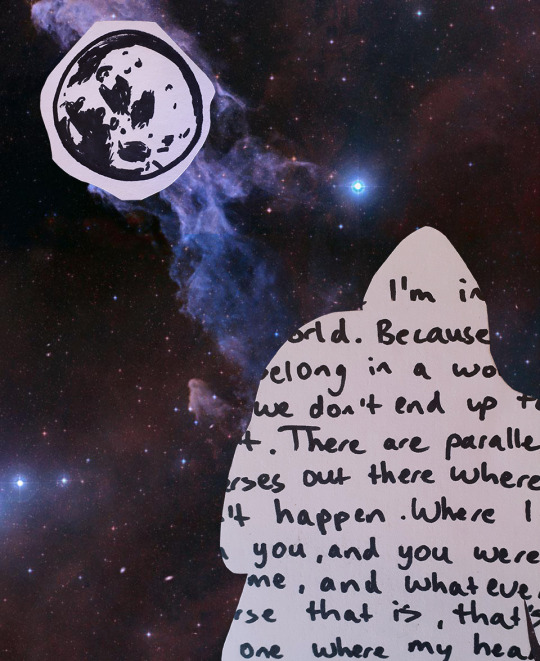 I'm in
orld. Because
elong in a wo
we don't end up t
t. There are paralle
erses out there where
't happen. Where I
you, and you were
me, and whateve
rse that is, that's
one where my hea